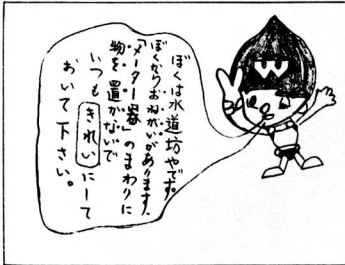 ぼくは水道坊やです。
ぼくからおねがいがあります。
「メーター器」のまわりに
物を置かないで
いつもきれいにして
おいて下さい。
W